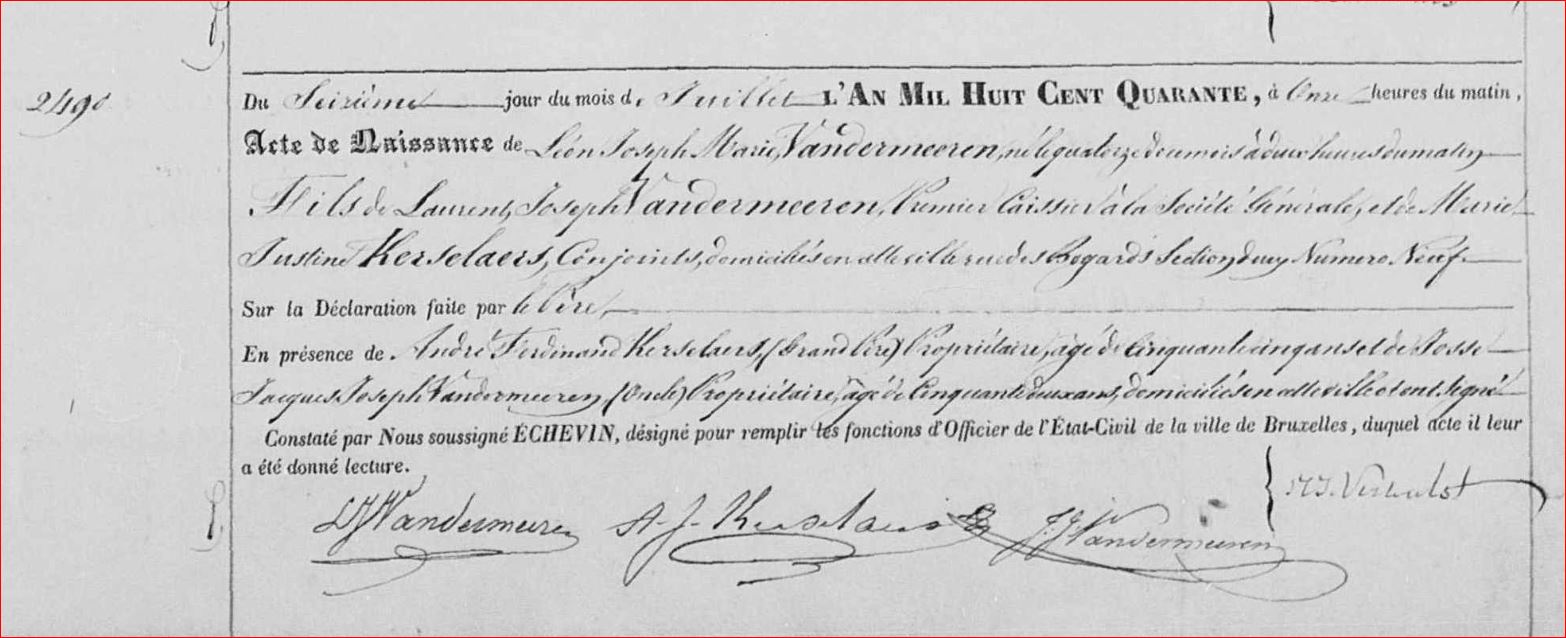 2490
Du Seizième jour du mois de Juillet L'AN MIL HUIT CENT QUARANTE, à Onze heures du matin,
Acte de Naissance de Léon Joseph Marie, Vandermeeren, né le quatorze de ce mois à deux heures du matin
Fils de Laurent, Joseph Vandermeeren, Premier Caissier à la Société Générale, et de Marie
Justine Kerselaers, Conjoints, domiciliés en cette ville rue des Bogards Section deux Numero Neuf
Sur la Déclaration faite par le Père,
En présence de André Ferdinand Kerselaers, (Grand Père) Propriétaire, âgé de Cinquante cinq ans et de Josse
Jacques Joseph Vandermeeren (Oncle) Propriétaire, âgé de Cinquante deux ans, domiciliés en cette ville et ont Signé
Constaté par Nous soussigné ÉCHEVIN, désigné pour remplir les fonctions d'Officier de l'État-Civil de la ville de Bruxelles, duquel acte il leur
a été donné lecture.
LJVandermeeren A. f. Kerselaers J. J. Vandermeeren Verhulst